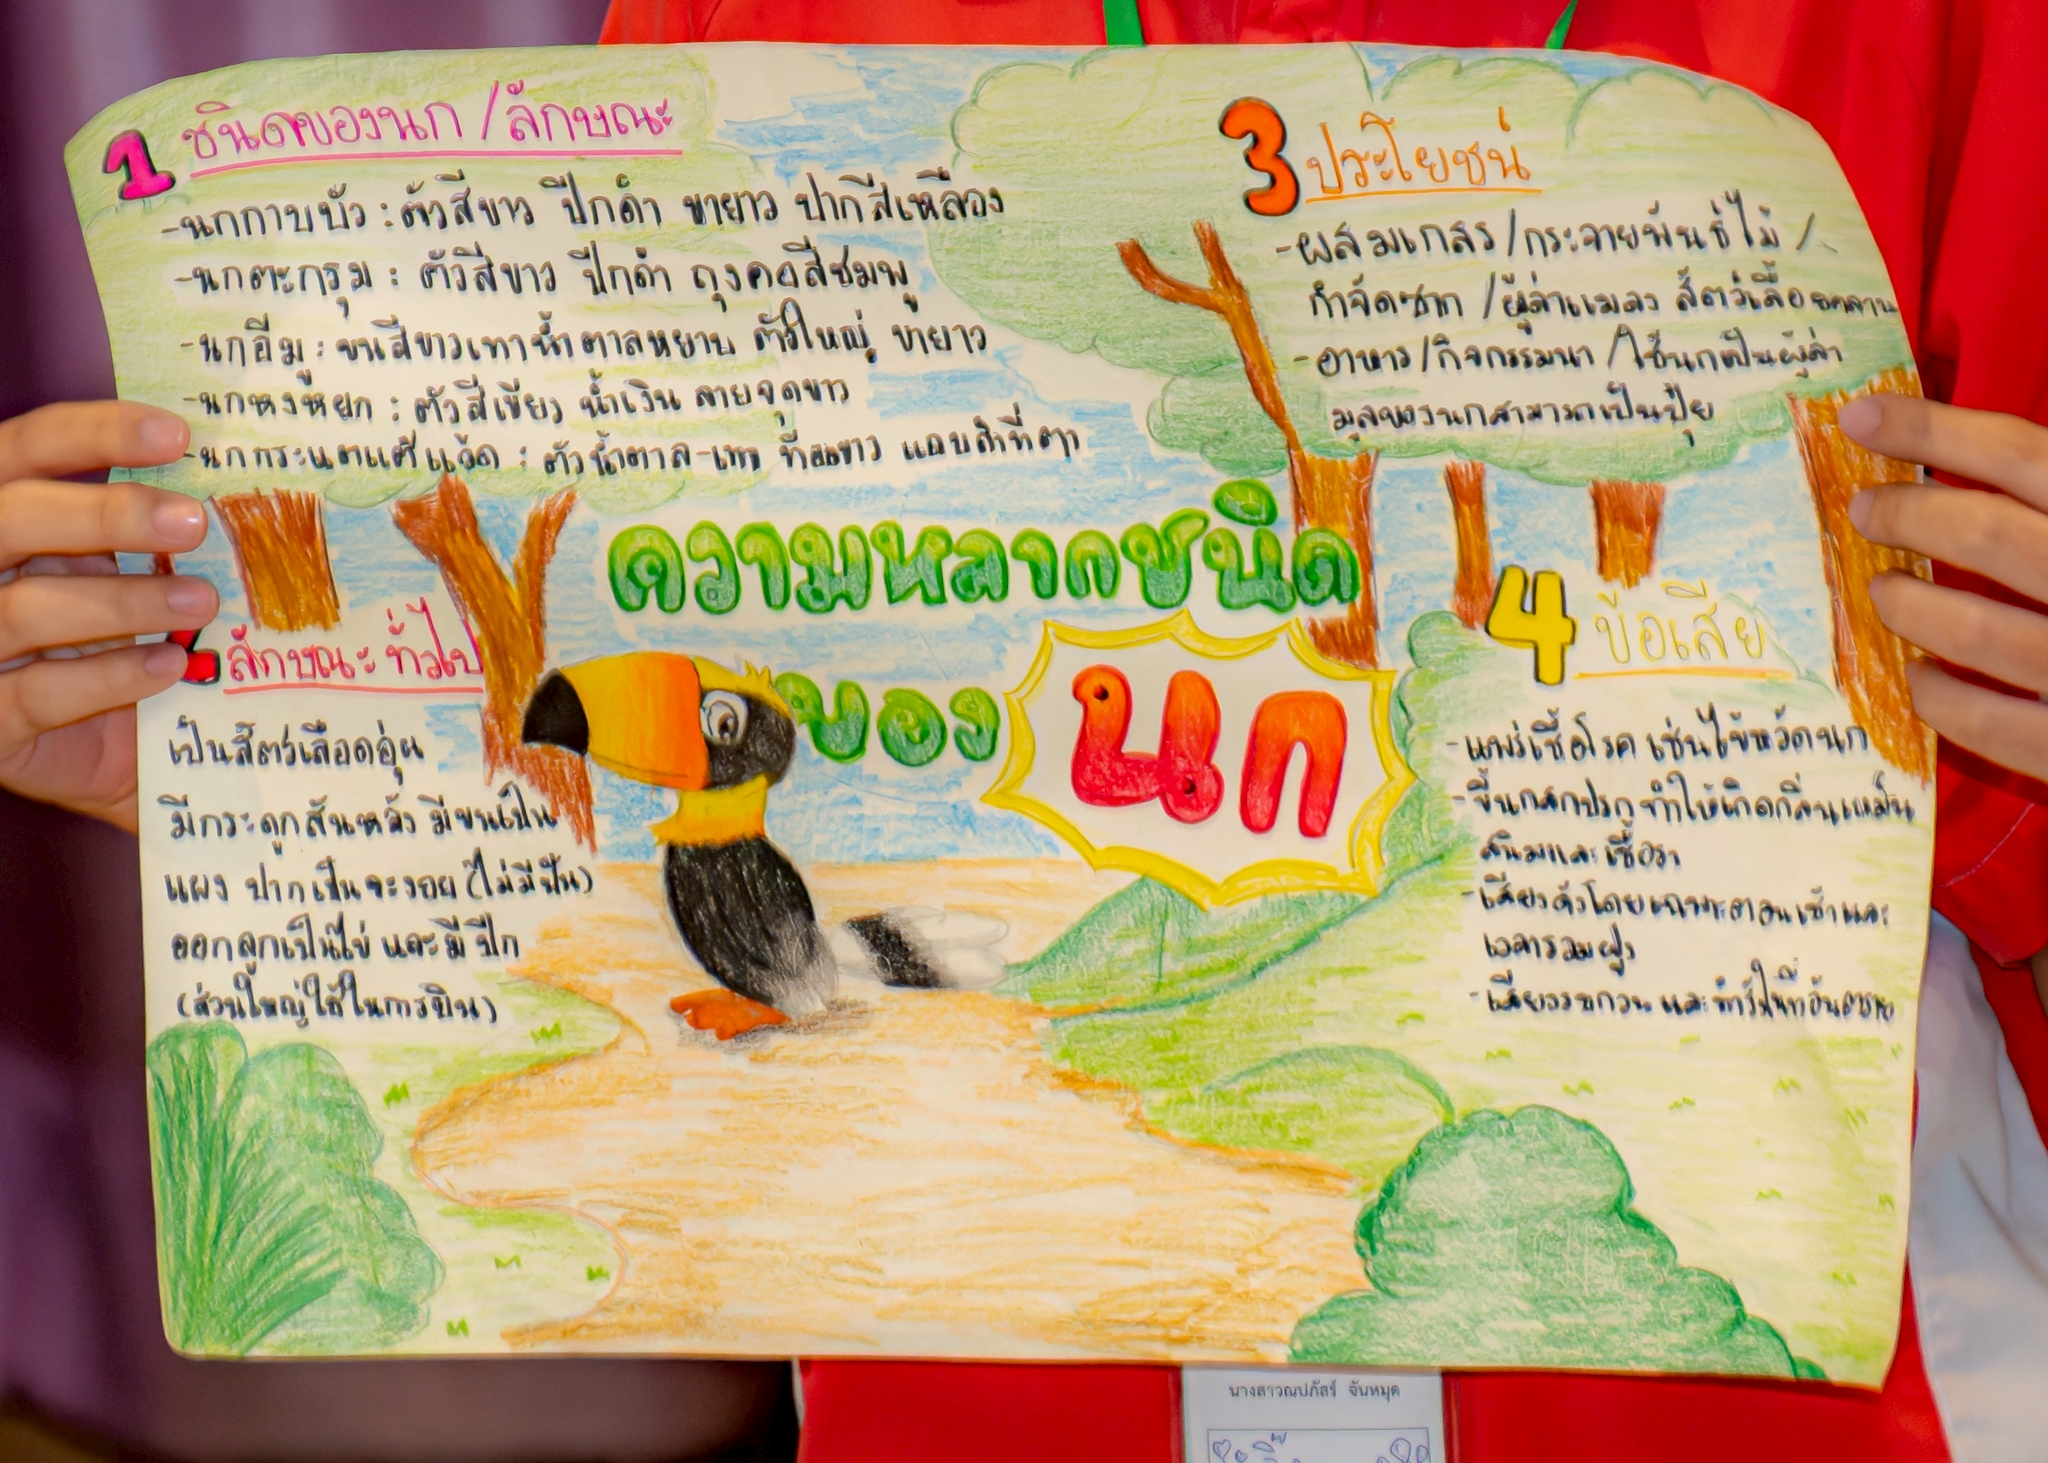 1 ชนิดของนก / ลักษณะ
-นกกาบบัว : ตัวสีขาว ปีกดำ ขายาว ปากสีเหลือง
-นกตะกรุม : ตัวสีขาว ปีกดำ ถุงคอสีชมพู
-นกอีมู : ขนสีขาวเทาน้ำตาลหยาบ ตัวใหญ่ ขายาว
-นกหงหยก : ตัวสีเขียว น้ำเงิน ลายจุดขาว
-นกกระแตแต้แว้ด : ตัวน้ำตาล-เทา ท้องขาว แถบดำที่ตา
ความหลากชนิด
ของ นก
ลักษณะทั่วไป
เป็นสัตว์เลือดอุ่น
มีกระดูกสันหลัง มีขนเป็น
แผง ปากเป็นจะงอย (ไม่มีฟัน)
ออกลูกเป็นไข่ และมีปีก
(ส่วนใหญ่ใช้ในการบิน)
3 ประโยชน์
-ผสมเกสร /กระจายพันธุ์ไม้ /
กำจัดซาก /ผู้ล่าแมลง สัตว์เลื้อยคลาน
-อาหาร /กิจกรรมนา /ใช้นกเป็นผู้ล่า
มูลของนกสามารถเป็นปุ๋ย
4 ข้อเสีย
-แพร่เชื้อโรค เช่นไข้หวัดนก
-ขี้นกสกปรก ทำให้เกิดกลิ่นเหม็น
สนิมและเชื้อรา
-เสียงดังโดยเฉพาะตอนเช้าและ
เวลารวมฝูง
-เสียงรบกวน และทำรังในที่อันตราย
นางสาวณปภัสร์ จันหมุด